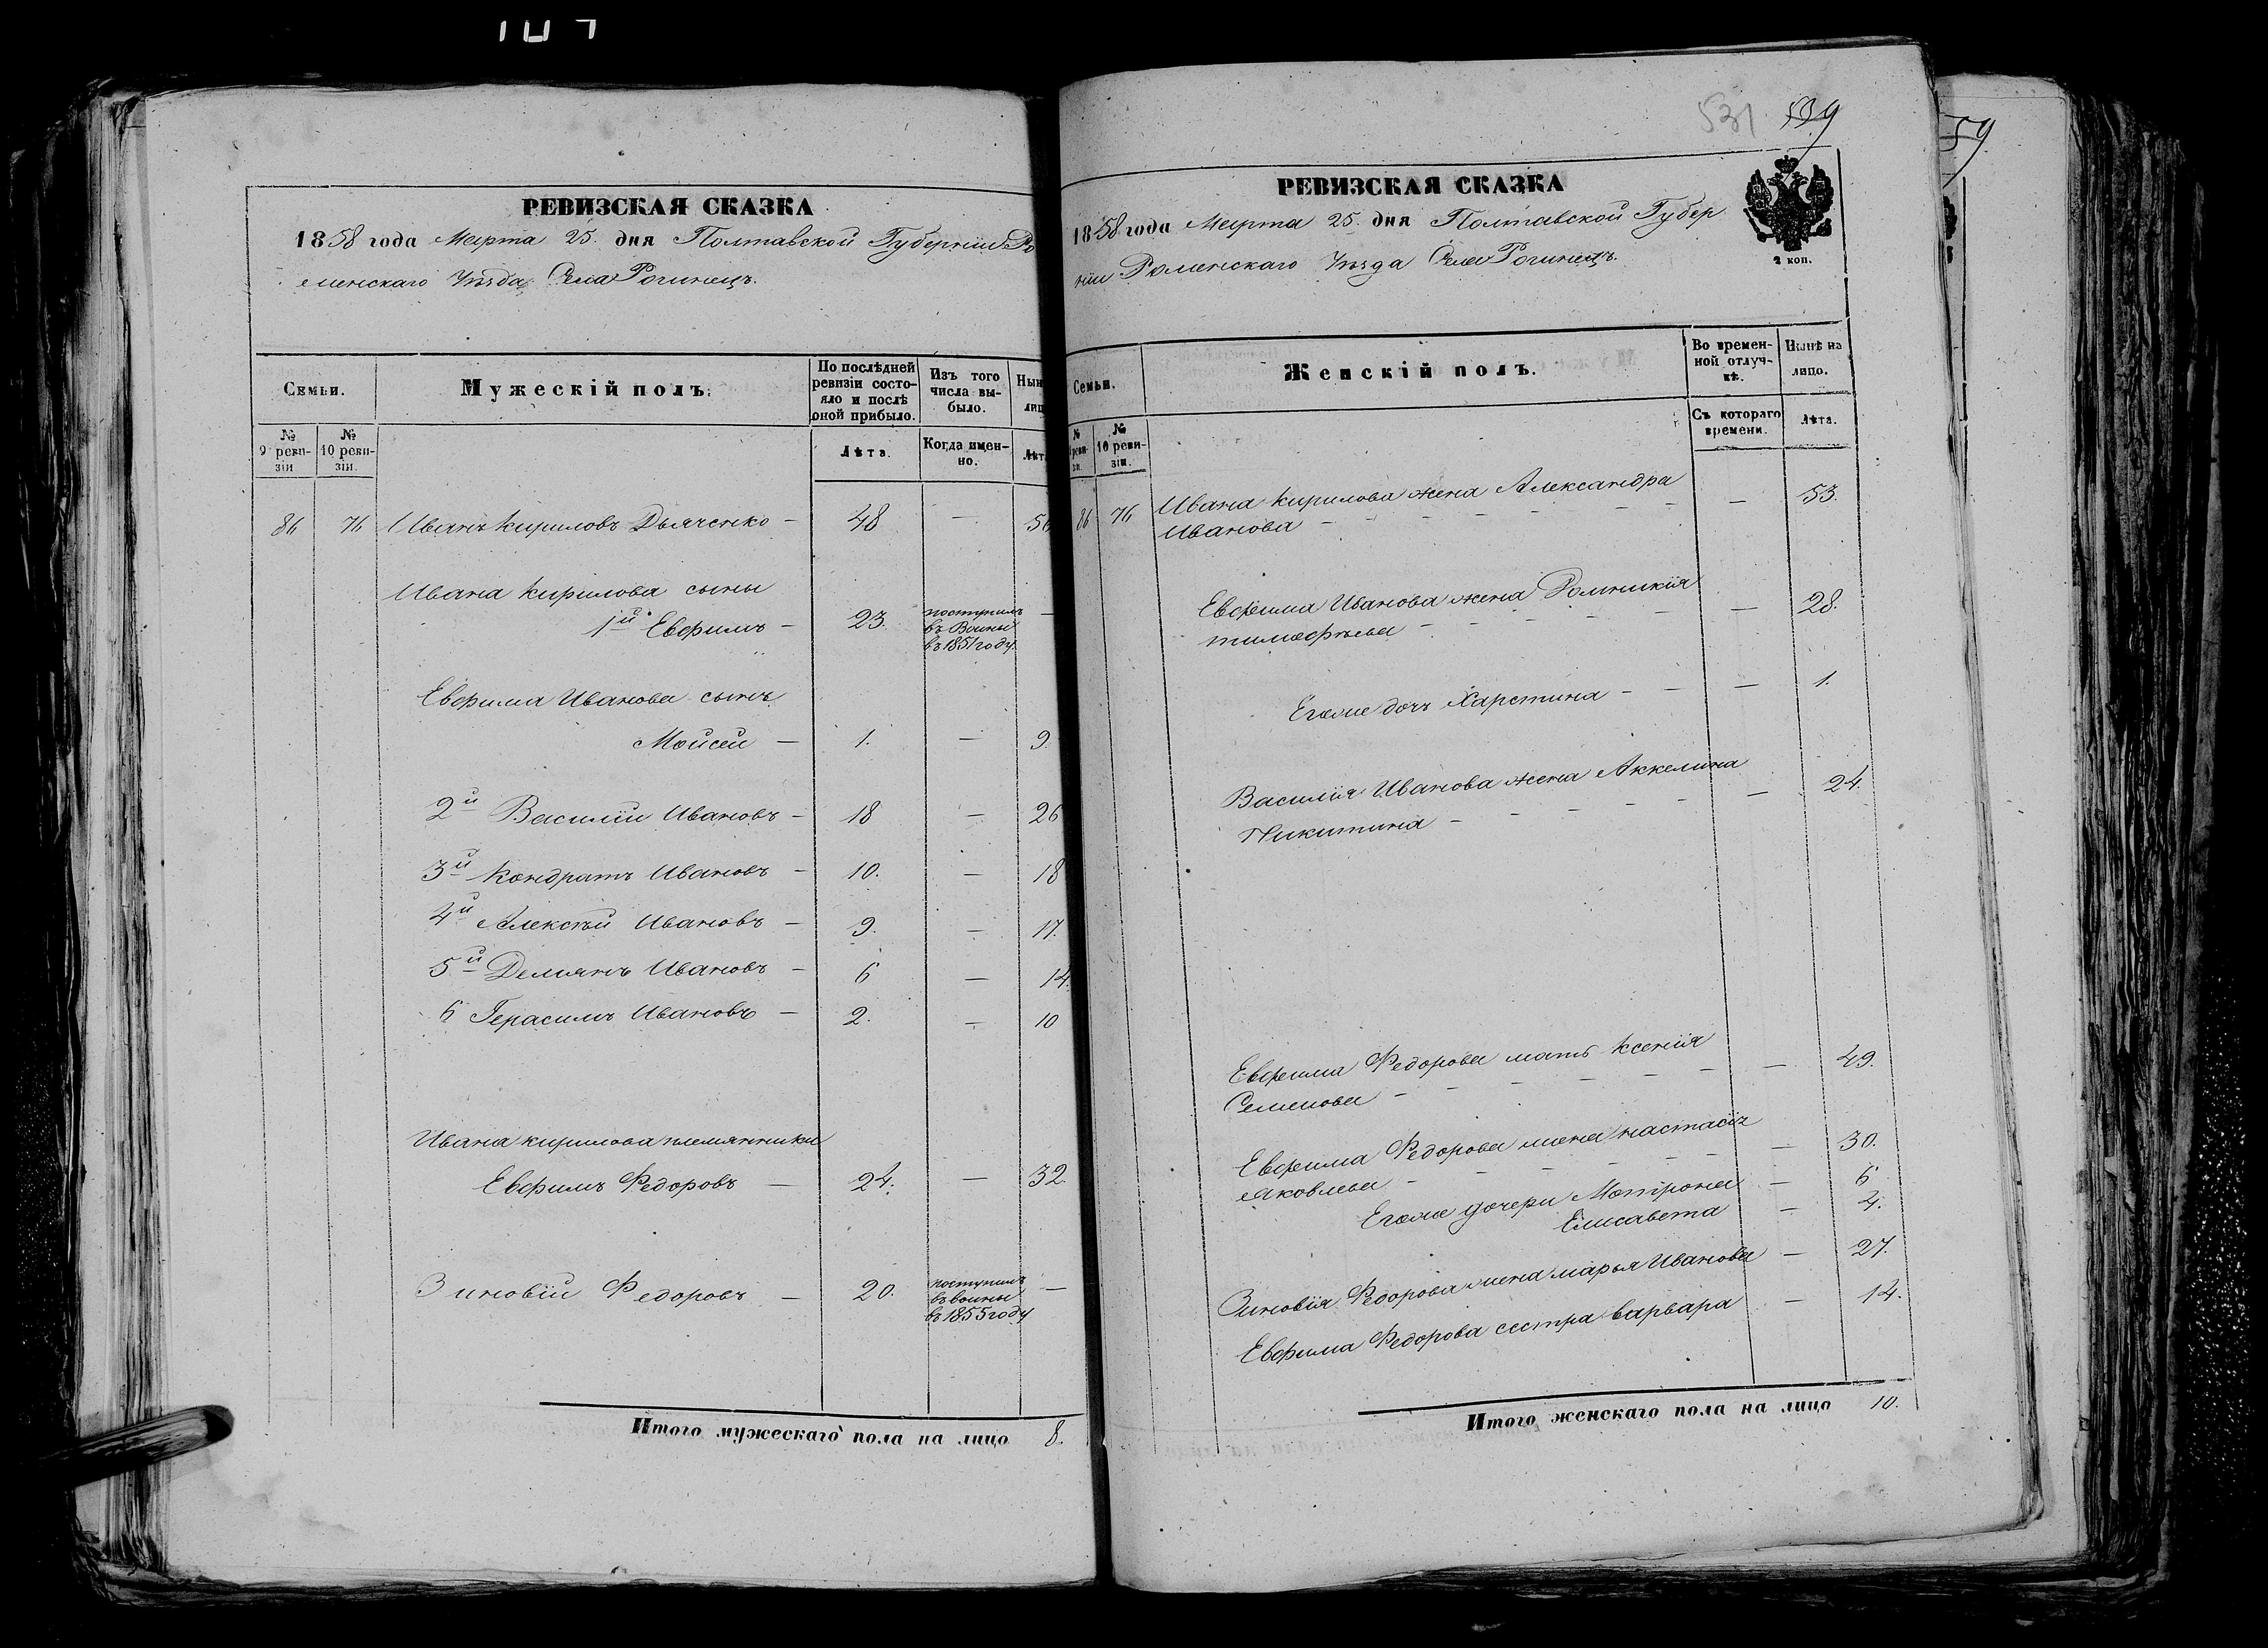 РЕВИЗСКАЯ СКАЗКА
1858 года Марта 25. дня Полтавской Губерніи Ро
менскаго Уѣзда Села Рогинец​ъ.
Семьи.
Мужескій полъ.
По послѣдней ревизіи состо-
яло и послѣ
оной прибыло.
Изъ того
числа вы-
было.
№
9 реви-
зіи
№
10 реви-
зіи.
Лѣта.
Когда имен-
но.
86 76 Иванъ Кириловъ Дьяченко – 48 – 56
Ивана Кирилова сыны
1й Евфимъ – 23. поступилъ
въ Воины
въ 1851 году. –
Евфима Иванова сынъ
Мойсей – 1. – 9.
2й Василій Ивановъ – 18 – 26
3й Кондратъ Ивановъ – 10. – 18
4й Алексѣй Ивановъ – 9. – 17.
5й Демянъ Ивановъ – 6 – 14.
6 Герасимъ Ивановъ – 2. – 10
Ивана Кирилова племянники
Евфимъ Федоровъ – 24. – 32.
Зиновій Федоровъ – 20. поступилъ
въ воины
въ 1855 году –
Итого мужескаго пола на лицо 8.
531 539
РЕВИЗСКАЯ СКАЗКА
1858 года Марта 25. дня Полтавской Губер
ніи Роменскаго Уѣзда Села Рогинецъ.
2 коп.
Семьи.
Женскій полъ.
Во времен-
ной отлуч-
кѣ.
Нынѣ на
лицо.
№
10 реви-
зіи.
Съ котораго
времени.
Лѣта.
86 76 Ивана Кирилова жена Александра
Иванова – – 53.
Евфима Иванова жена
тимофѣева – – 28.
Егоже дочь Харстина – – 1.
Василія Иванова жена Аккелина
Никитина – – 24.
Евфима Федорова мать Ксенія
Семенова – – 49.
Евфима Федорова жена настасія
Яковлева – – 30.
Егоже дочери Мотрона – 6
Елисавета – 4.
Зиновія Федорова жена марья Иванова – 27.
Евфима Федорова сестра варвара – 14.
Итого женскаго пола на лицо 10.
59